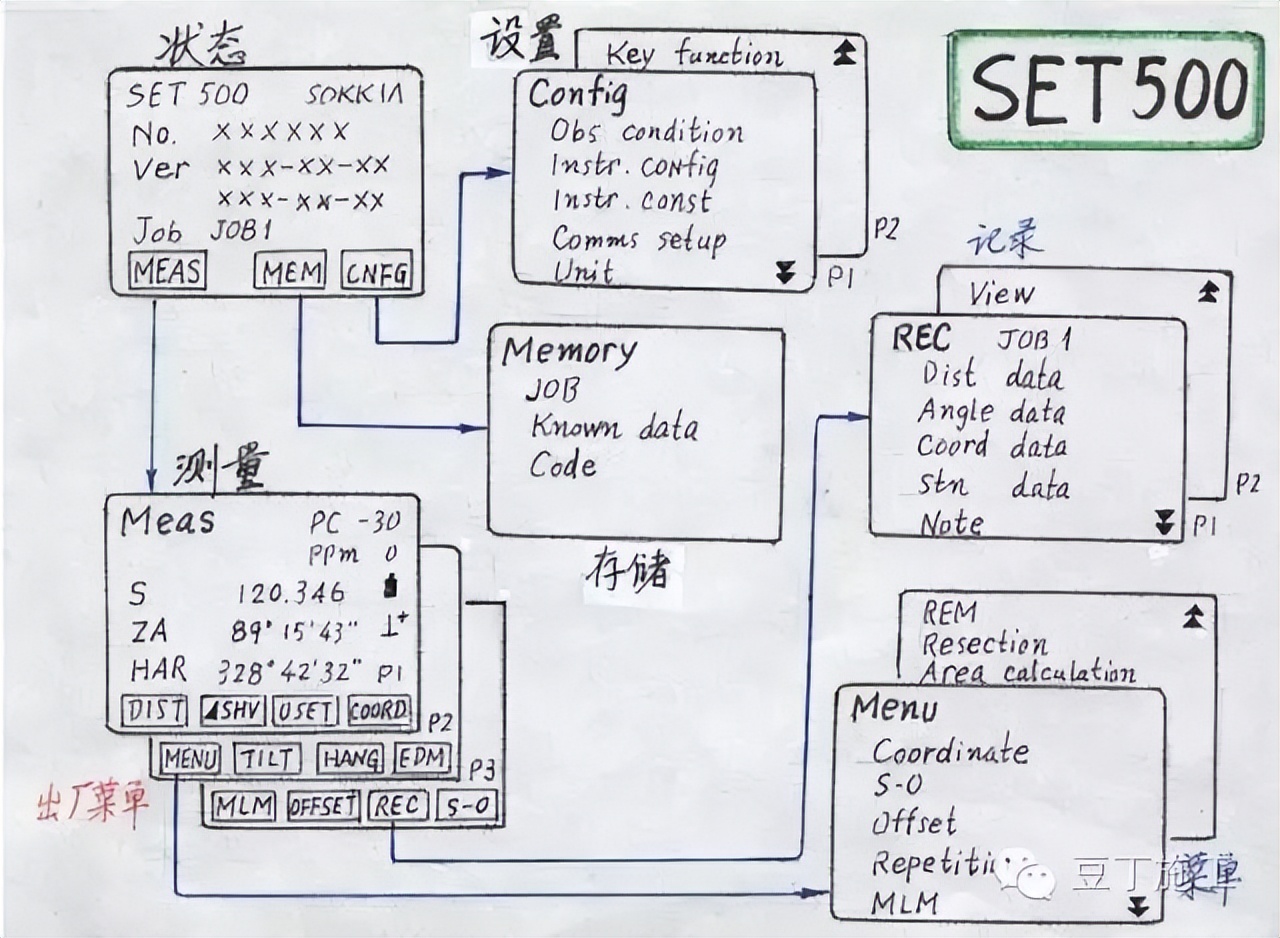 状态
设置
SET500
Key function
SET 500 SOKKIA
No. xxxxxx
Ver xxx-xx-xx
xxx-xx-xx
Job JOB1
MEAS MEM CNFG
Config
Obs condition
Instr. config
Instr. const
Comms setup
Unit
P1
P2
Memory
JOB
Known data
Code
存储
记录
View
REC JOB 1
Dist data
Angle data
Coord data
Stn data
Note
P1
P2
测量
Meas PC -30
PPm 0
S 120.346
ZA 89° 15' 43"
HAR 328° 42' 32" P1
DIST ◢SHV 0SET COORD
P2
MENU TILT HANG EDM
P3
MLM OFFSET REC S-O
出厂菜单
REM
Resection
Area calculation
Menu
Coordinate
S-O
Offset
MLM
豆丁
菜单